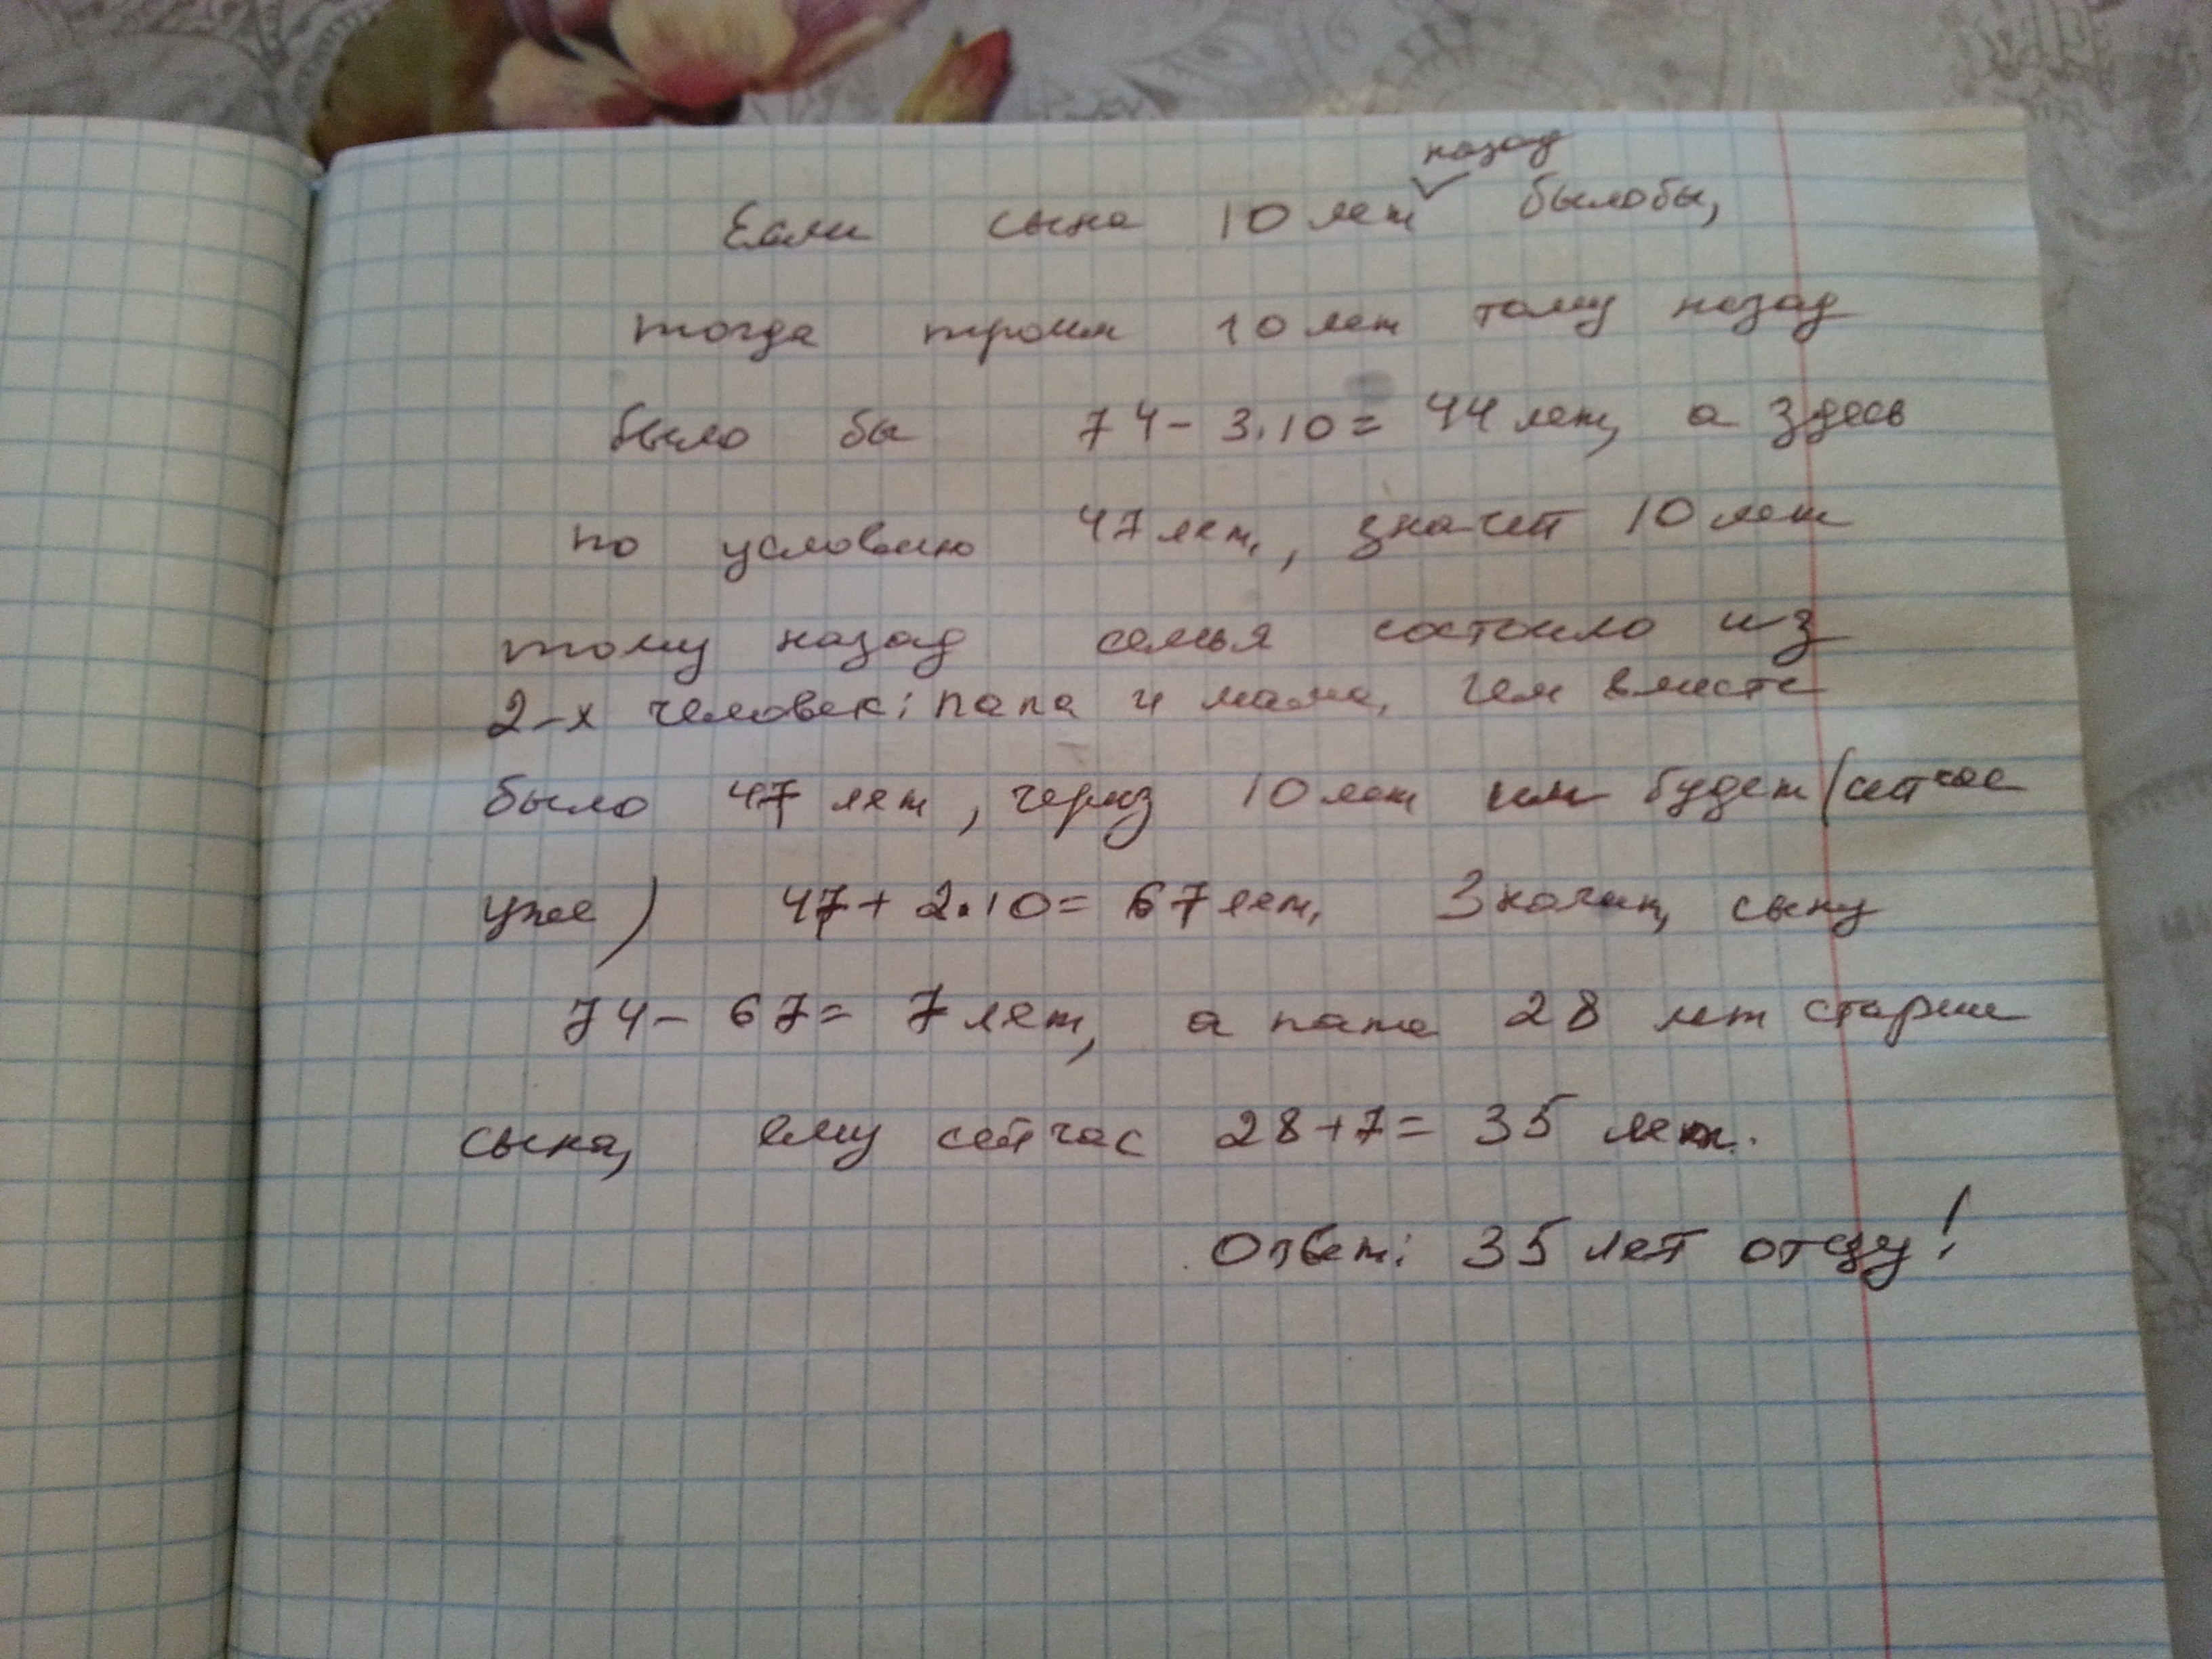 назад
Если сына 10 лет былобы,
тогда троим 10 лет тому назад
было бы 74 - 3.10 = 44 лет, а здесь
по условию 47 лет, значит 10 лет
тому назад семья состоило из
2-х человек: папа и мама, чем вместе
было 47 лет, через 10 лет им будет (сейчас
уже) 47 + 2.10 = 67 лет, Значит, сыну
74 - 67 = 7 лет, а папа 28 лет старше
сына, ему сейчас 28+7 = 35 лет.
Ответ: 35 лет отцу!